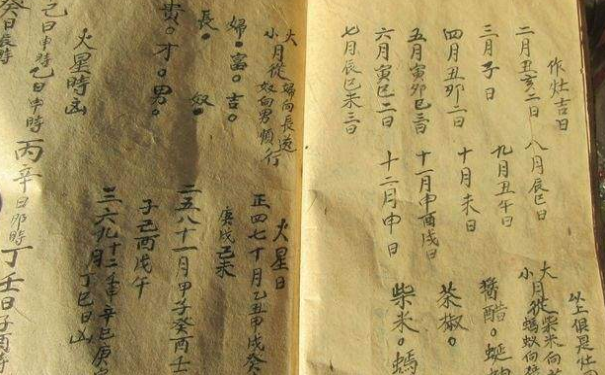 作灶吉日
二月丑亥二日 八月辰巳日
三月子日 九月丑午日
四月丑卯二日 十月未日
五月寅卯巳三日 十一月申酉戌日
六月寅巳二日 十二月申日
七月辰巳未三日
以上俱是灶
大月從柴米向
小月從螞蟻向
醬醋。
茶椒。
柴米。螞
大 婦向長逆
小月從奴向男順行
婦。富。吉。
長。奴。
貴。才。男。
火星時凶
己日申時乙日申時
丙辛日卯時丁壬日子酉時
癸日辰時
火星日
正四七十月乙丑甲戌癸
庚戌己未
二五八十一月甲子癸酉壬
子己酉戊午
三六九十二壬申辛巳庚
月 丁巳日凶